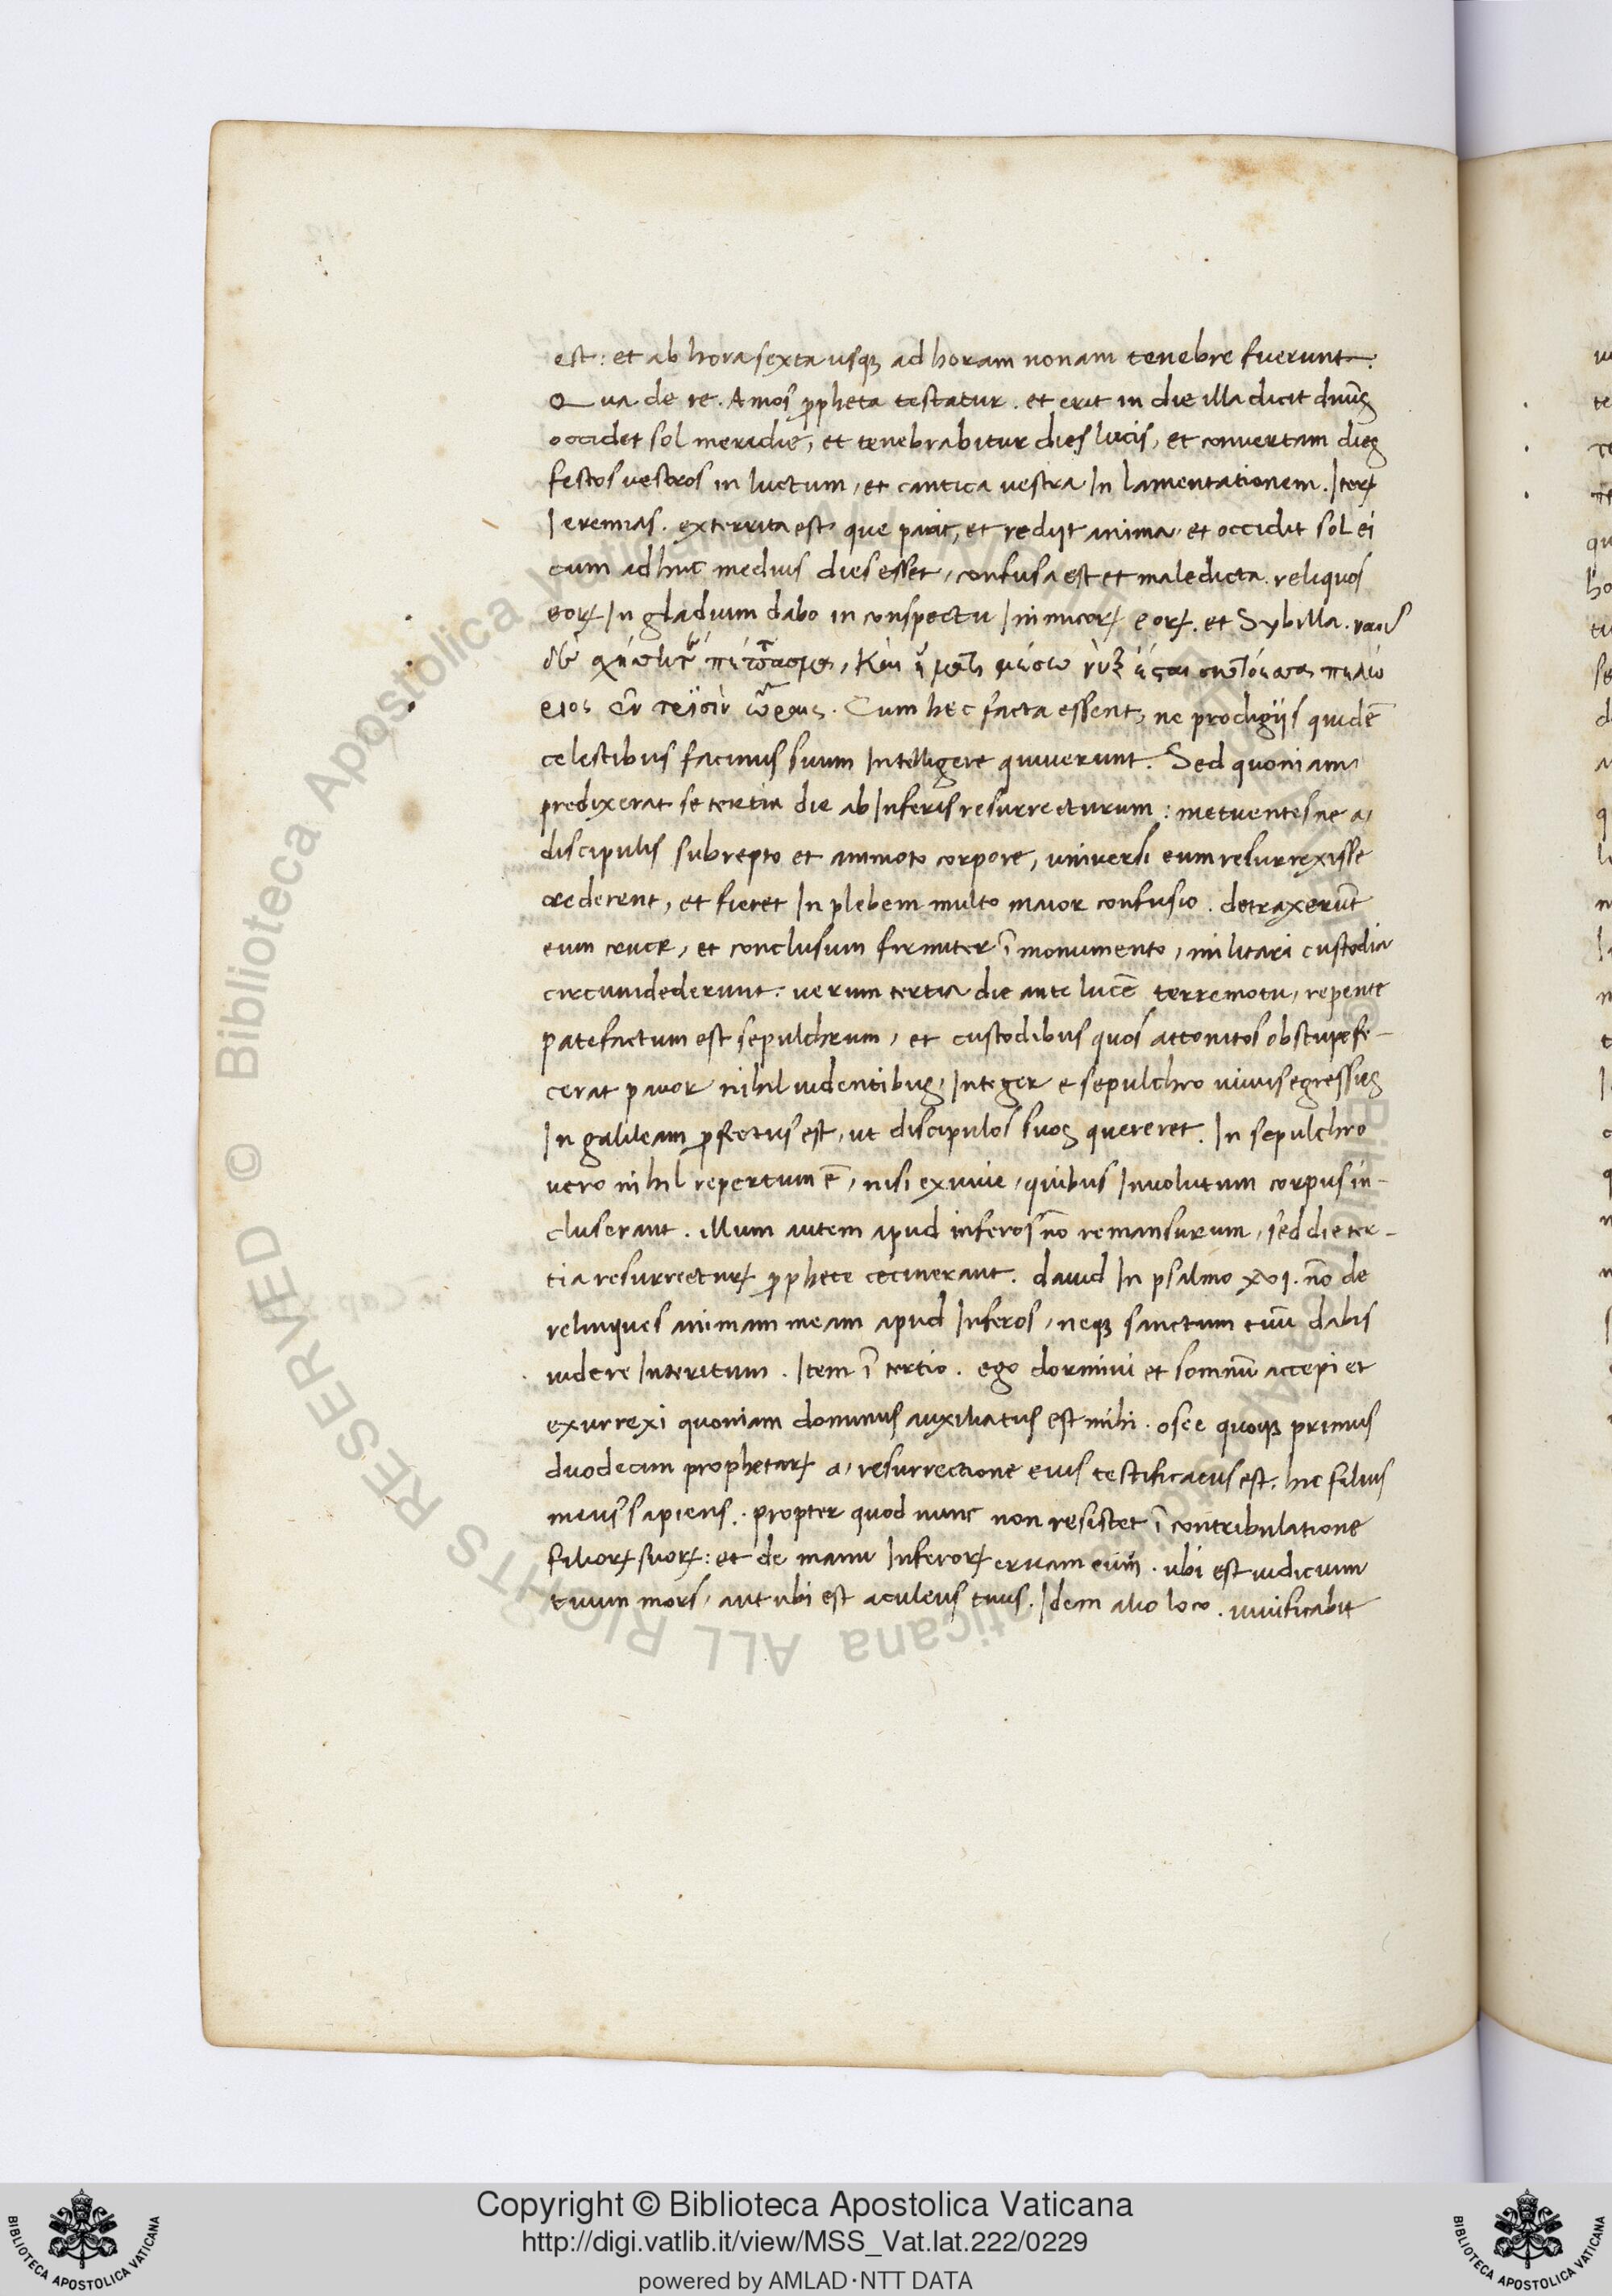 est: et ab hora sexta usqꝫ ad horam nonam tenebre fuerunt.
Qua de re. Amos ꝓpheta testatur. et erit in die illa dicit dn̄s
occidet sol meridie, et tenebrabitur dies lucis, et convertam dies
festos vestros in luctum, et cantica vestra In lamentationem. Iteꝝ
Ieremias. exterrita est que parit, et redijt anima, et occidit sol ei
cum adhuc medius dies esset, confusa est et maledicta. reliquos
eoꝝ In gladium dabo in conspectu Inimicoꝝ eoꝝ. et Sybilla. ναοῦ
δὲ
Cum hec facta essent, ne prodigijs quidē
celestibus facinus suum Intelligere quiverunt. Sed quoniam
predixerat se tertia die ab Inferis resurrecturum: metuentes ne a,
discipulis subrepto et ammoto corpore, universi eum resurrexisse
crederent, et fieret In plebem multo maior confusio. detraxerūt
eum cruce, et conclusum firmiter ī monumento, militari custodia
circumdederunt. verum tertia die ante lucē terremotu, repente
patefactum est sepulchrum, et custodibus quos attonitos obstupefe-
cerat pavor nihil videntibus, Integer e sepulchro vivus egressus
In galileam ꝓfectus est, ut discipulos suos quereret. In sepulchro
vero nihil repertum ē, nisi exuvie, quibus Involutum corpus in-
cluserant. illum autem apud inferos nō remansurum, sed die ter-
tia resurrectuꝝ ꝓphete cecinerant. david In psalmo xvi. nō de
relinques animam meam apud Inferos, neqꝫ sanctum tuū dabis
videre Interitum. Item ī tertio. ego dormivi et somnū accepi et
exurrexi quoniam dominus auxiliatus est mihi. osee quoqꝫ primus
duodecim prophetaꝝ a, resurrectione eius testificatus est. hic filius
meus sapiens. propter quod nunc non resistet ī contribulatione
filioꝝ suoꝝ: et de manu Inferoꝝ eruam eum. ubi est iudicium
tuum mors, aut ubi est aculeus tuus. Idem alio loco. vivificabit
Copyright © Biblioteca Apostolica Vaticana
http://digi.vatlib.it/view/MSS_Vat.lat.222/0229
powered by AMLAD·NTT DATA
BIBLIOTECA APOSTOLICA VATICANA
BIBLIOTECA APOSTOLICA VATICANA
© Biblioteca Apostolica Vaticana ALL RIGHTS RESERVED © Biblioteca Apostolica Vaticana ALL RIGHTS RESERVED